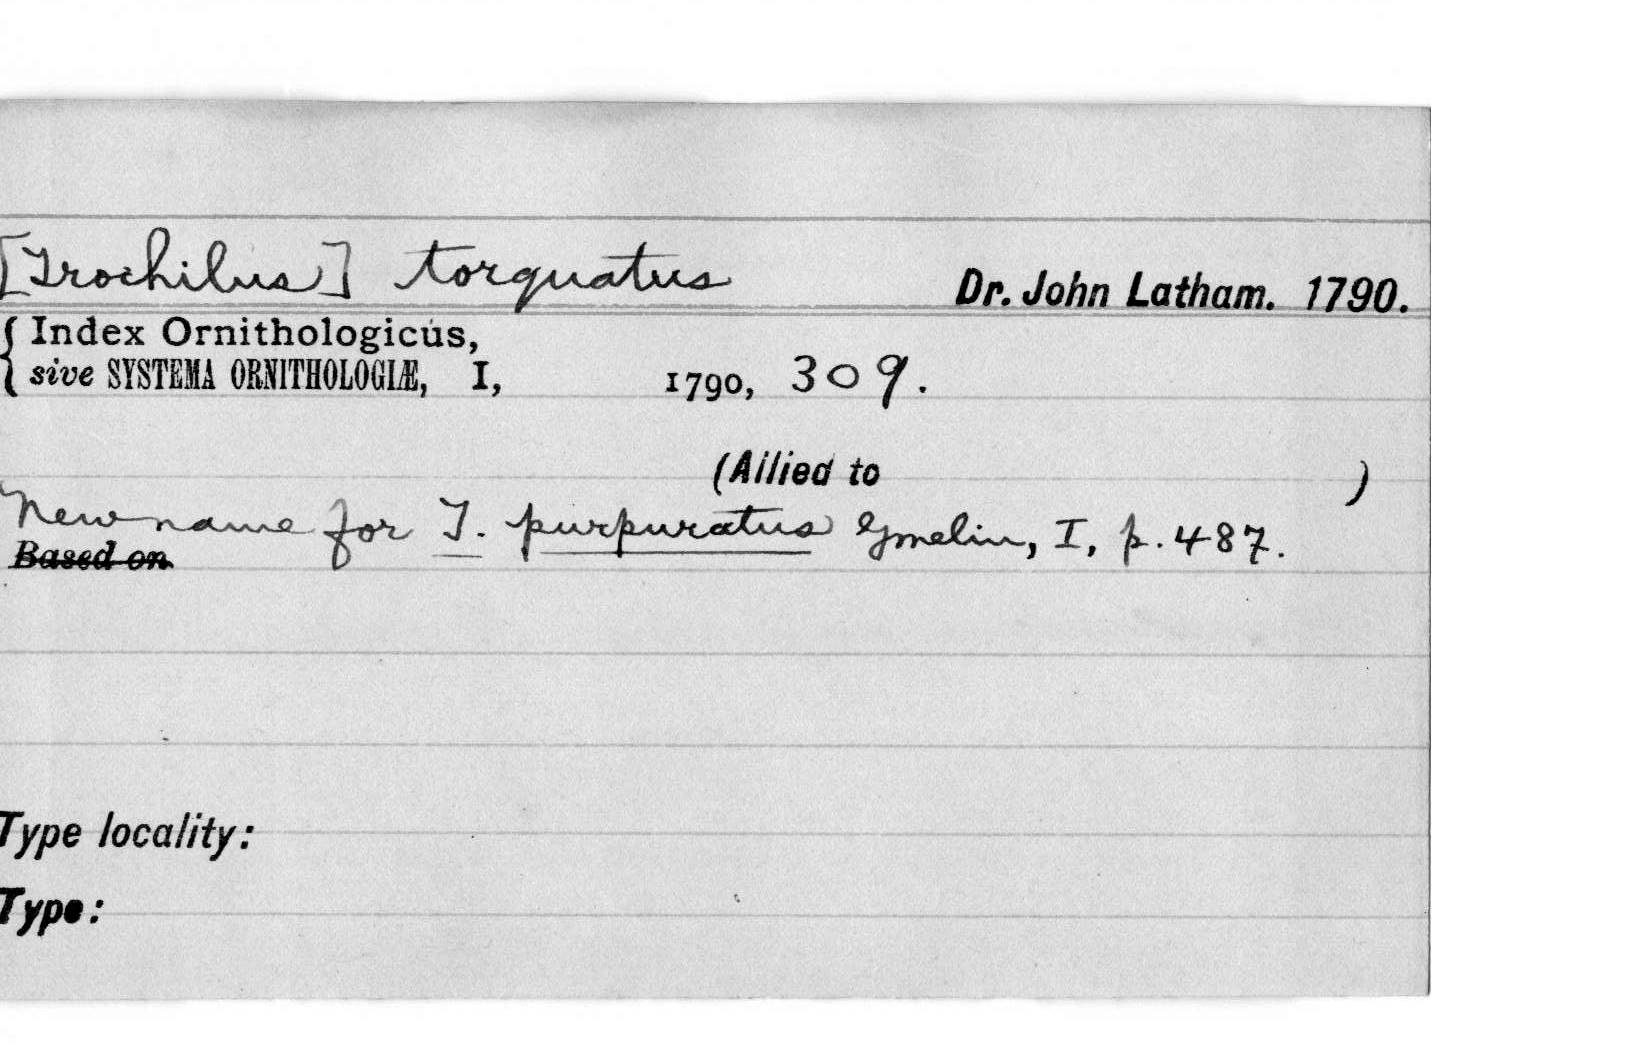 [Trochilus] torquatus Dr. John Latham. 1790.
{ Index Ornithologicus,
sive SYSTEMA ORNITHOLOGIÆ, I, 1790, 309.
(Allied to )
New name for T. purpuratus Gmelin, I, p. 487.
Based on
Type locality:
Type: